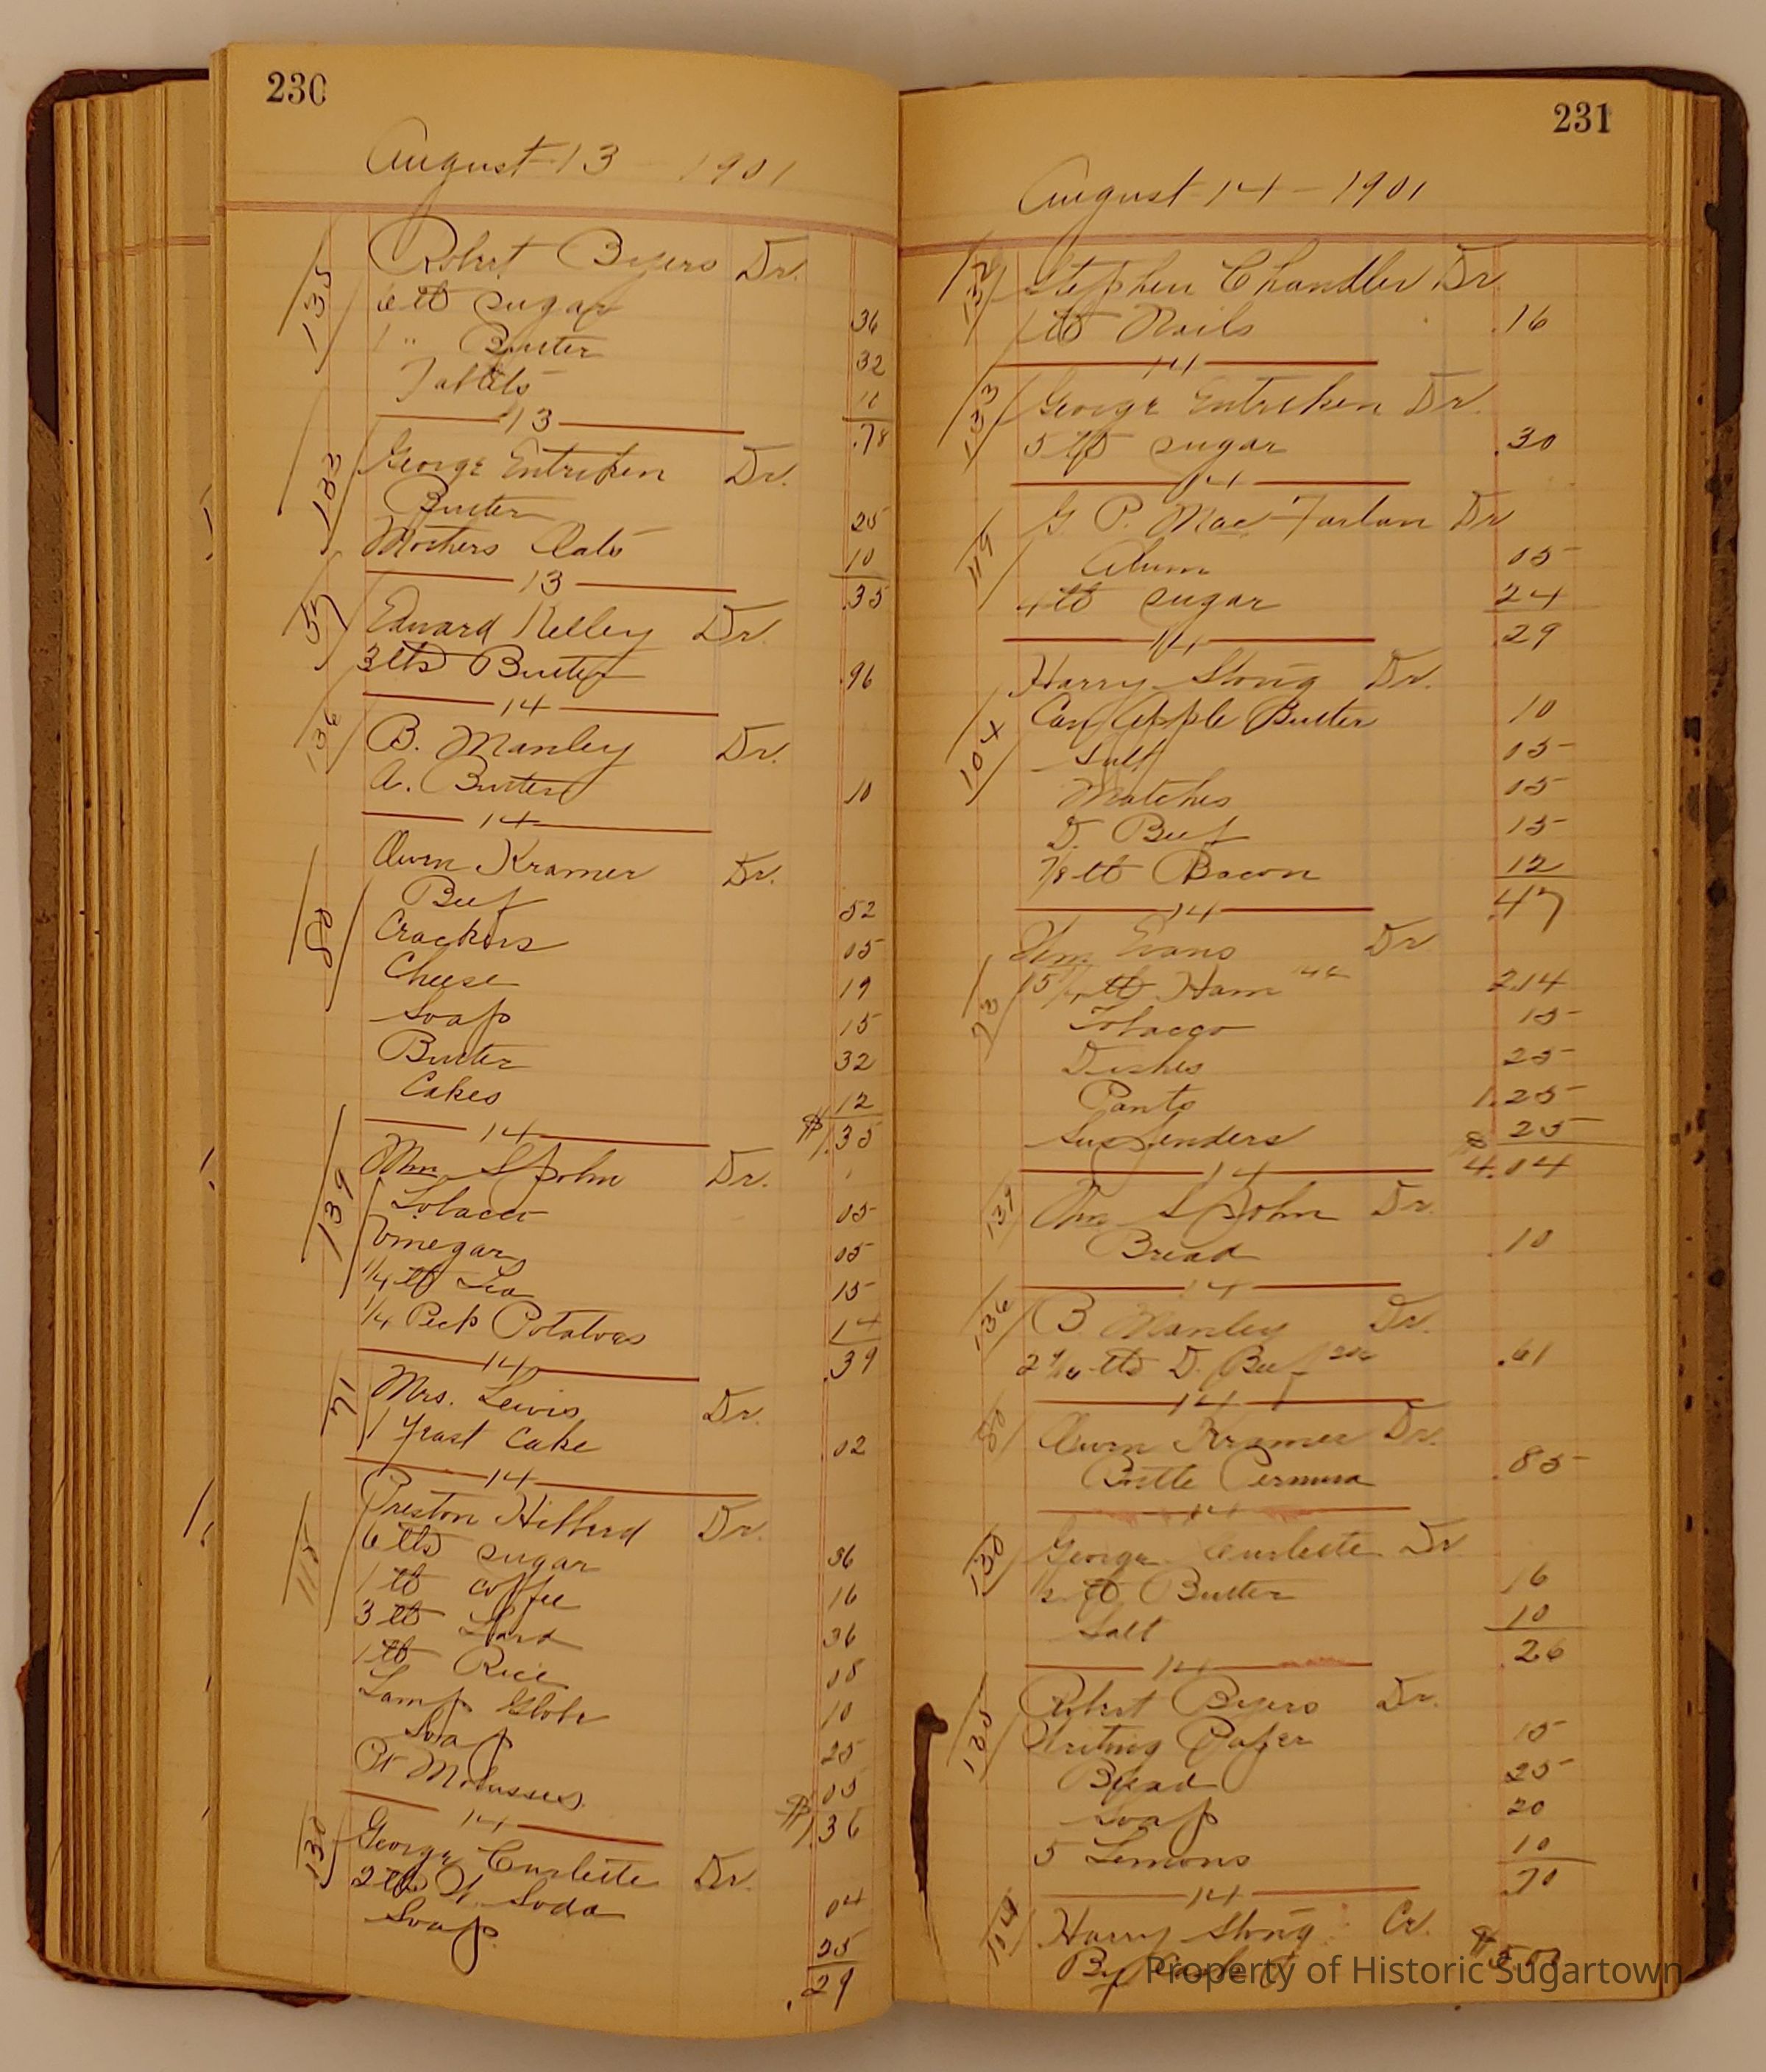 230
August 13 - 1901
135 Robert Byers Dr.
6 lb sugar 36
1 " Butter 32
Tablets 10
13 .78
133 George Entriken Dr.
Butter 25
Mothers Oats 10
13 .35
55 Edward Kelley Dr.
3 lbs Butter .96
14
136 B. Manley Dr.
A. Butter 10
14
80 Owen Kramer Dr.
Beef 52
Crackers 05
Cheese 19
Soap 15
Butter 32
Cakes 12
14 $1.35
139 Wm Spohn Dr.
Tobacco 05
Vinegar 05
1/4 lb Tea 15
1/4 Peck Potatoes 14
14 .39
71 Mrs. Lewis Dr.
1 Yeast Cake .02
14
115 Preston Hibberd Dr.
6 lbs sugar 36
1 lb coffee 16
3 lb Lard 36
1 lb Rice 08
Lamp Globe 10
Soap 25
Pt Molasses 05
14 $1.36
130 George Curlette Dr.
2 lbs W. Soda 04
Soap 25
.29
231
August 14 - 1901
132 Stephen Chandler Dr
1 lb Nails .16
14
133 George Entriken Dr.
5 lb sugar .30
14
119 G. P. Mac Farlan Dr
Alum 05
4 lb sugar 24
14 .29
104 Harry Stong Dr.
Can Apple Butter 10
Salt 05
Matches 05
D. Beef 15
7/8 lb Bacon 12
14 .47
73 Wm. Evans Dr
15 1/4 lb Ham 14c 2.14
Tobacco 15
Dishes 25
Pants 1.25
Suspenders 25
14 $4.04
139 Wm Spohn Dr.
Bread .10
14
136 B Manley Dr.
lbs D. Beef .61
14
80 Owen Kramer Dr.
Bottle Peruna .85
14
130 George Curlette Dr
1/2 lb Butter 16
Salt 10
14 .26
135 Robert Byers Dr.
Writing Paper 15
Bread 25
Soap 20
5 Lemons 10
14 .70
104 Harry Stong Cr.
By Cash
Property of Historic Sugartown